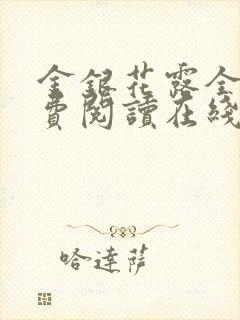 金銀花露全
費閱讀在綫
哈達薩